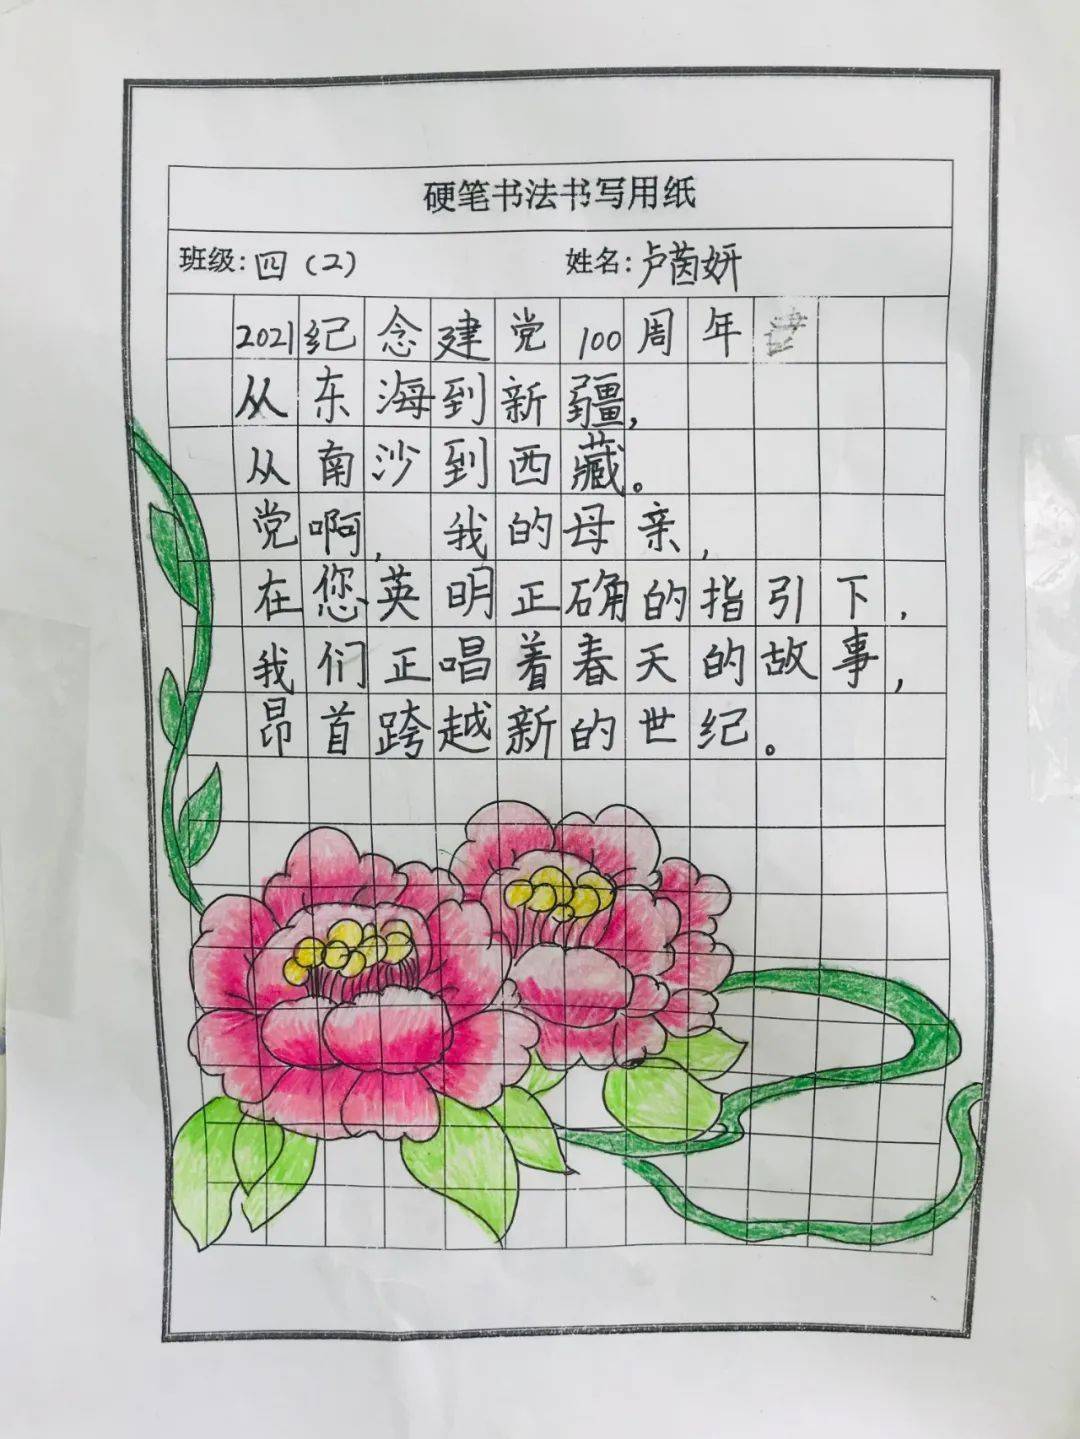 硬笔书法书写用纸
班级:四(2) 姓名:卢茵妍
2021纪念建党100周年
从东海到新疆,
从南沙到西藏。
党啊,我的母亲,
在您英明正确的指引下,
我们正唱着春天的故事,
昂首跨越新的世纪。